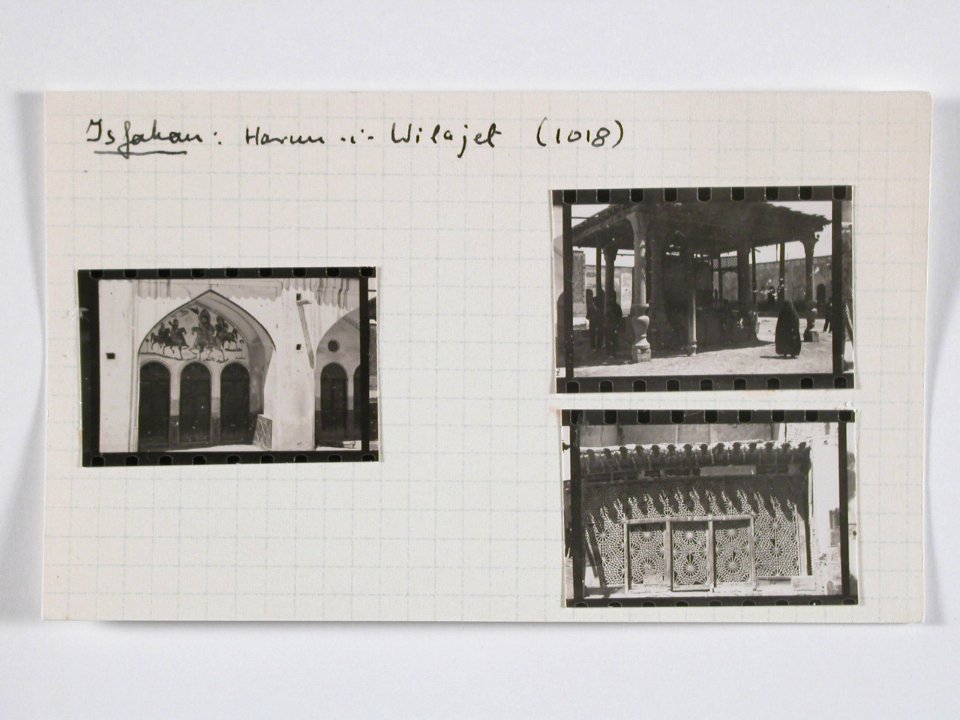 Isfahan: Harun-i-Wilajet (1018)